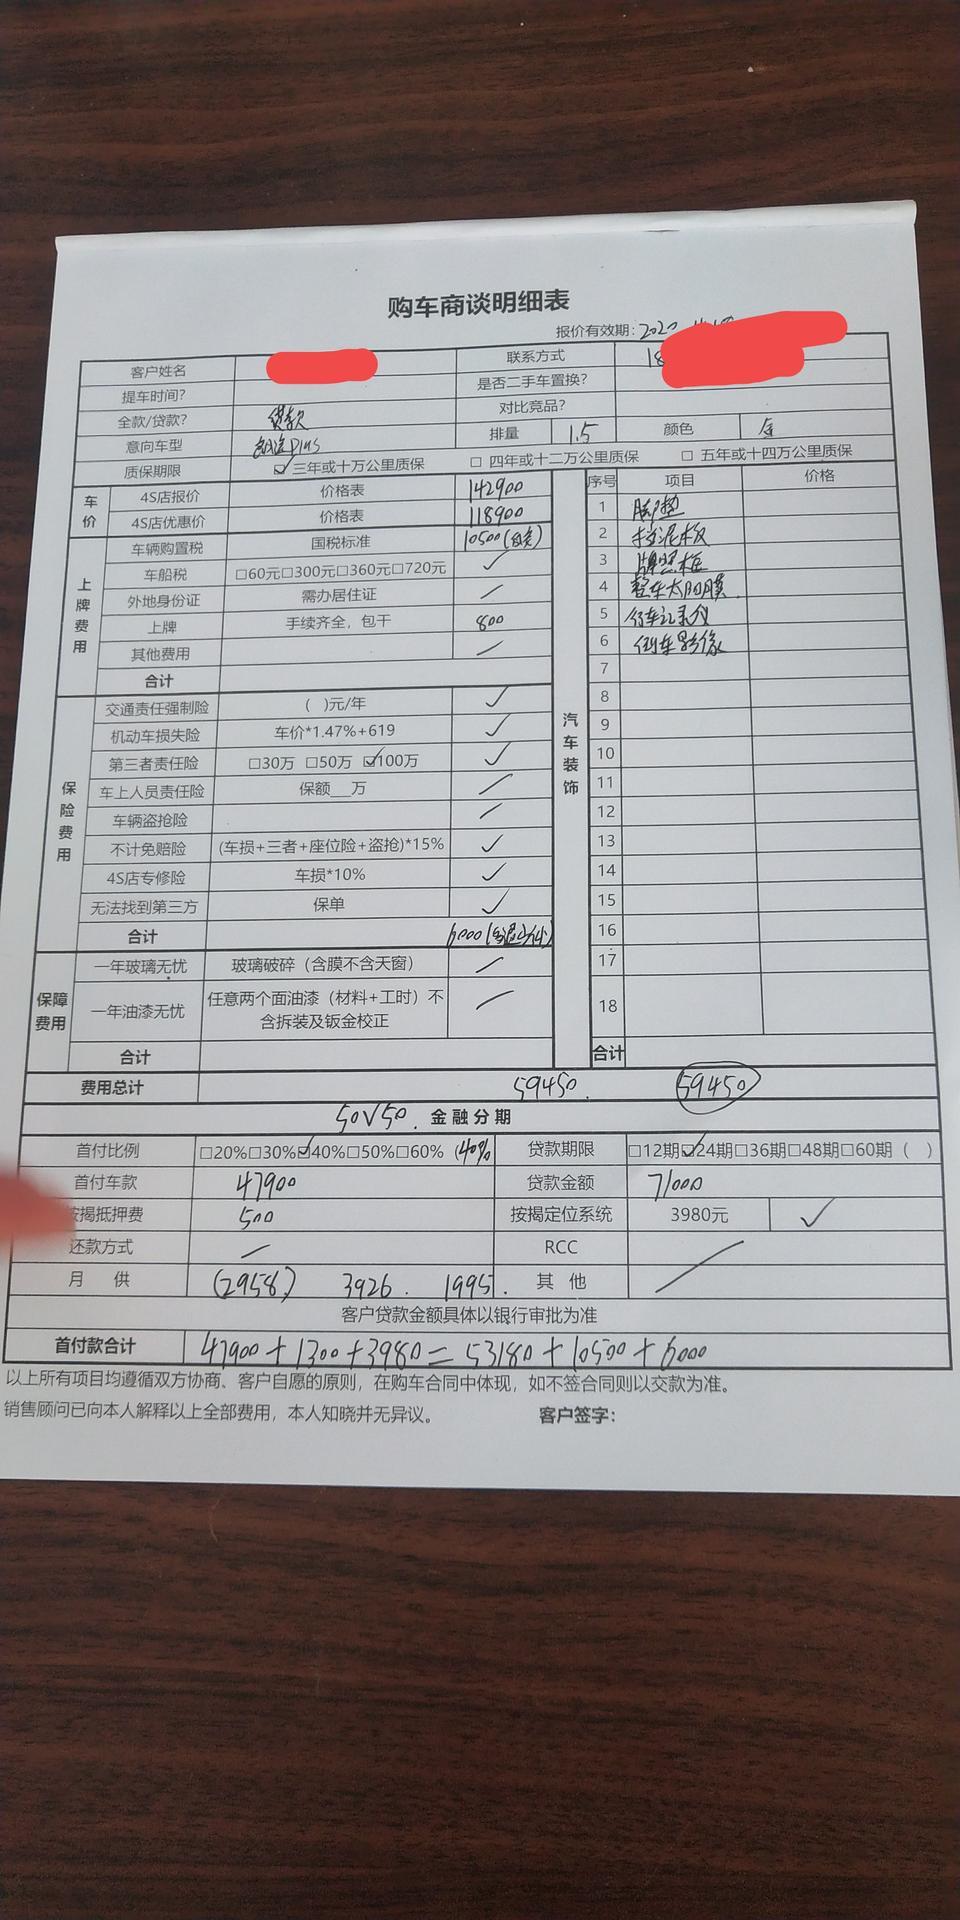 购车商谈明细表
报价有效期: 2020
客户姓名 联系方式 18
提车时间? 是否二手车置换?
全款/贷款? 贷款 对比竞品?
意向车型 plus 排量 1.5 颜色 金
质保期限 ☑三年或十万公里质保 □ 四年或十二万公里质保 □ 五年或十四万公里质保
车价 4S店报价 价格表 142900
4S店优惠价 价格表 118900
上牌费用 车辆购置税 国税标准 10500
车船税 □60元□300元□360元□720元 ✓
外地身份证 需办居住证
上牌 手续齐全，包干 800
其他费用
合计
保险费用 交通责任强制险 ( )元/年 ✓
机动车损失险 车价*1.47%+619 ✓
第三者责任险 □30万 □50万 ☑100万 ✓
车上人员责任险 保额__万
车辆盗抢险
不计免赔险 (车损+三者+座位险+盗抢)*15% ✓
4S店专修险 车损*10% ✓
无法找到第三方 保单 ✓
合计 6000
保障费用 一年玻璃无忧 玻璃破碎（含膜不含天窗）
一年油漆无忧 任意两个面油漆（材料+工时）不
含拆装及钣金校正
合计
汽车装饰
序号 项目 价格
1 脚垫
2 挡泥板
3 牌照框
4 整车太阳膜
5 行车记录仪
6 倒车影像
7
8
9
10
11
12
13
14
15
16
17
18
合计
费用总计 59450. 59450
50√50. 金融分期
首付比例 □20%□30%☑40%□50%□60% (40% 贷款期限 □12期☑24期□36期□48期□60期 ( )
首付车款 47900 贷款金额 71000
按揭抵押费 500 按揭定位系统 3980元 ✓
还款方式 RCC
月 供 (2958) 3926. 1995. 其 他
客户贷款金额具体以银行审批为准
首付款合计 47900+1300+3980=53180+10500+6000
以上所有项目均遵循双方协商、客户自愿的原则，在购车合同中体现，如不签合同则以交款为准。
销售顾问已向本人解释以上全部费用，本人知晓并无异议。 客户签字：